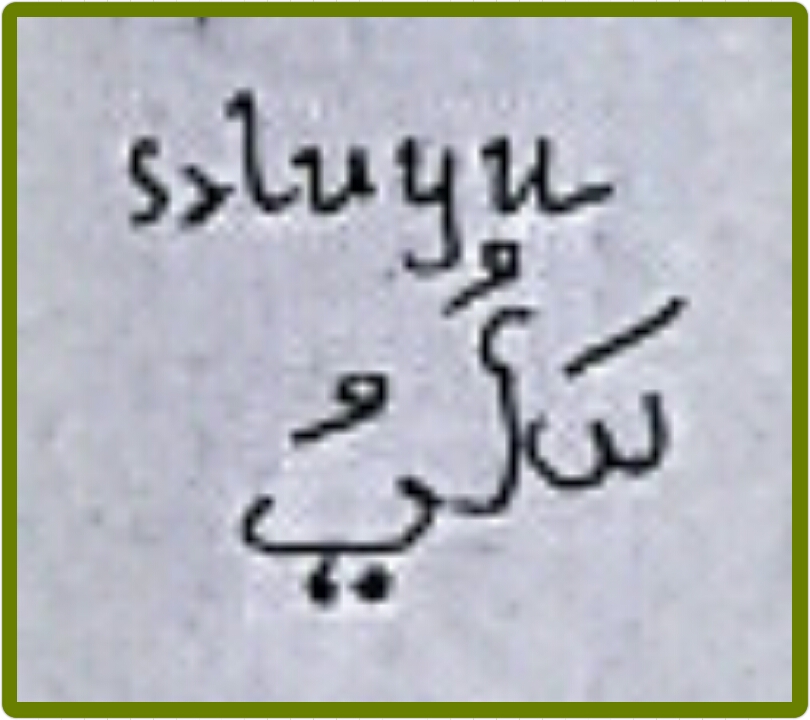 s>luyu
سَلُيُ